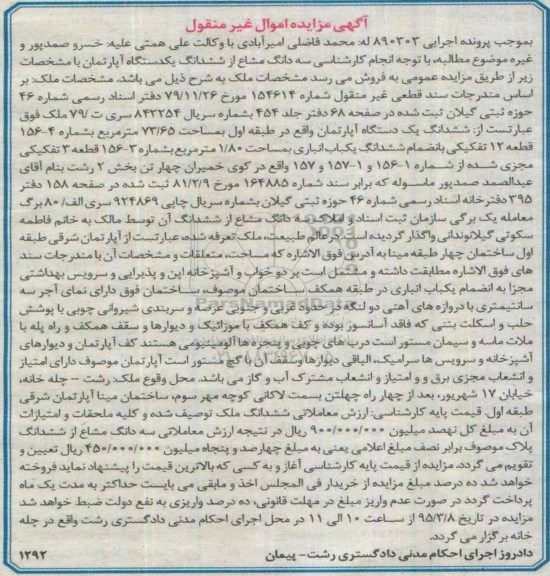 آگهی مزایده اموال غیر منقول
بموجب پرونده اجرایی ۸۹۰۳۰۳ له: محمد فاضلی امیرآبادی با وکالت علی همتی علیه: خسرو صمدپور و
غیره موضوع مطالبه، با توجه انجام کارشناسی سه دانگ مشاع از ششدانگ یکدستگاه آپارتمان با مشخصات
زیر از طریق مزایده عمومی به فروش می رسد مشخصات ملک به شرح ذیل می باشد. مشخصات ملک: بر
اساس مندرجات سند قطعی غیر منقول شماره ۱۵۴۶۱۴ مورخ ۷۹/۱۱/۲۶ دفتر اسناد رسمی شماره ۴۶
حوزه ثبتی گیلان ثبت شده در صفحه ۶۸ دفتر جلد ۴۵۴ بشماره سریال ۸۴۳۲۵۴ سری ت /۷۹ ملک فوق
عبارتست از: ششدانگ یک دستگاه آپارتمان واقع در طبقه اول بمساحت ۷۳/۶۵ مترمربع بشماره ۴-۱۵۶
قطعه ۱۲ تفکیکی بانضمام ششدانگ یکباب انباری بمساحت ۱/۸۰ مترمربع بشماره ۳-۱۵۶ قطعه ۳ تفکیکی
مجزی شده از شماره ۱-۱۵۶ و ۱-۱۵۷ و ۱۵۷ واقع در کوی خمیران چهار تن بخش ۲ رشت بنام آقای
عبدالصمد صمدپور ماسوله که برابر سند شماره ۱۶۴۸۸۵ مورخ ۸۱/۲/۹ ثبت شده در صفحه ۱۵۸ دفتر
۳۹۵ دفترخانه اسناد رسمی شماره ۴۶ حوزه ثبتی گیلان بشماره سریال چاپی ۹۲۴۸۶۹ سری الف/ ۸۰ برگ
معامله یک برگی سازمان ثبت اسناد و املاک سه دانگ مشاع از ششدانگ آن توسط مالک به خانم فاطمه
سکوتی گیلانوندانی واگذار گردیده است. در عالم طبیعت، ملک تعرفه شده، عبارتست از آپارتمان شرقی طبقه
اول ساختمان چهار طبقه مینا به آدرس فوق الاشاره که مساحت، متعلقات و مشخصات آن با مندرجات سند
های فوق الاشاره مطابقت داشته و مشتمل است بر دو خواب و آشپزخانه اپن و پذیرایی و سرویس بهداشتی
مجزا به انضمام یکباب انباری در طبقه همکف ساختمان موصوف، ساختمان فوق دارای نمای آجر سه
سانتیمتری با دروازه های آهنی دو لنگه در حدود غربی و جنوبی عرصه و سربندی شیروانی چوبی با پوشش
حلب و اسکلت بتنی که فاقد آسانسور بوده و کف همکف با موزائیک و دیوارها و سقف همکف و راه پله با
ملات ماسه و سیمان مستور است درب های چوبی و پنجره ها آلومینیومی هستند کف آپارتمان و دیوارهای
آشپزخانه و سرویس ها سرامیک، الباقی دیوارها و سقف آن با گچ مستور است آپارتمان موصوف دارای امتیاز
و انشعاب مجزی برق و و امتیاز و انشعاب مشترک آب و گاز می باشد. محل وقوع ملک: رشت – چله خانه،
خیابان ۱۷ شهریور، بعد از چهار راه چهلتن بسمت لاکانی کوچه مهر سوم، ساختمان مینا آپارتمان شرقی
طبقه اول. قیمت پایه کارشناسی: ارزش معاملاتی ششدانگ ملک توصیف شده و کلیه ملحقات و امتیازات
آن به مبلغ کل نهصد میلیون ۹۰۰/۰۰۰/۰۰۰ ریال در نتیجه ارزش معاملاتی سه دانگ مشاع از ششدانگ
پلاک موصوف برابر نصف مبلغ اعلامی یعنی به مبلغ چهارصد و پنجاه میلیون ۴۵۰/۰۰۰/۰۰۰ ریال تعیین و
تقویم می گردد. مزایده از قیمت پایه کارشناسی آغاز و به کسی که بالاترین قیمت را پیشنهاد نماید فروخته
خواهد شد ده درصد مبلغ مزایده از خریدار فی المجلس اخذ و مابقی می بایست حداکثر به مدت یک ماه
پرداخت گردد در صورت عدم واریز مبلغ در مهلت قانونی، ده درصد واریزی به نفع دولت ضبط خواهد شد
مزایده در تاریخ ۹۵/۳/۸ از ساعت ۱۰ الی ۱۱ در محل اجرای احکام مدنی دادگستری رشت واقع در چله
خانه برگزار می گردد.
دادورز اجرای احکام مدنی دادگستری رشت- پیمان ۱۲۹۲
ParsNamadData